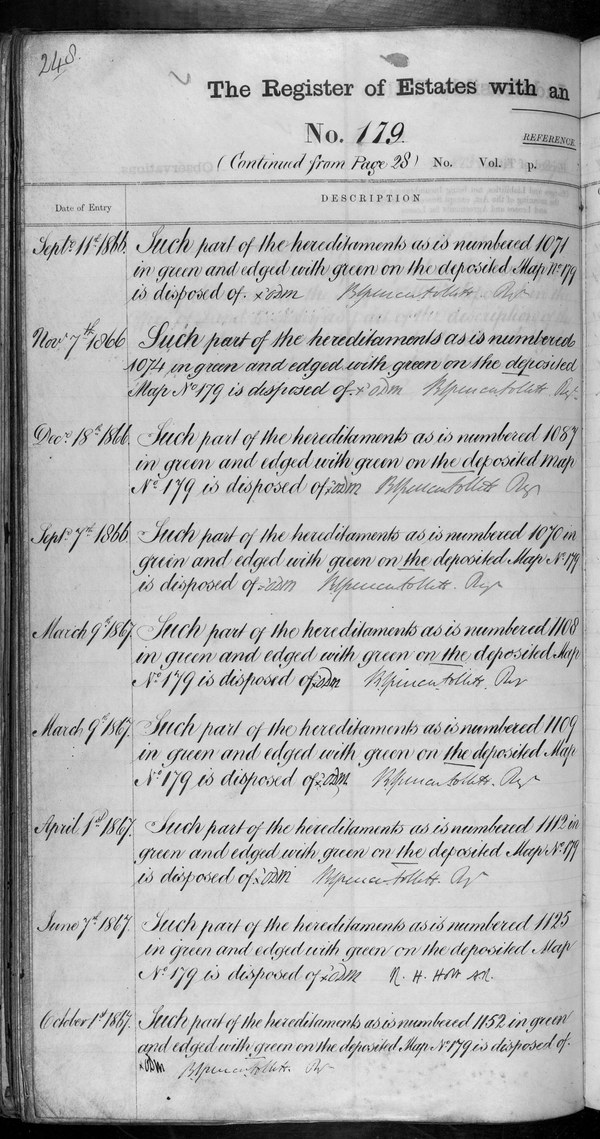 248.
The Register of Estates with an
No. 179.
REFERENCE
(Continued from Page 28) No. Vol. p.
Date of Entry DESCRIPTION
Septr. 11th 1866. Such part of the hereditaments as is numbered 1071
in green and edged with green on the deposited Map No 179
is disposed of.
Novr 7th 1866 Such part of the hereditaments as is numbered
1074 in green and edged with green on the deposited
Map No 179 is disposed of.
Decr. 18th 1866. Such part of the hereditaments as is numbered 1087
in green and edged with green on the deposited Map
No. 179 is disposed of
Septr. 7th 1866. Such part of the hereditaments as is numbered 1070 in
green and edged with green on the deposited Map No. 179
is disposed of
March 9th 1867. Such part of the hereditaments as is numbered 1108
in green and edged with green on the deposited Map
No. 179 is disposed of
March 9th 1867. Such part of the hereditaments as is numbered 1109
in green and edged with green on the deposited Map
No. 179 is disposed of
April 1st 1867. Such part of the hereditaments as is numbered 1112 in
green and edged with green on the deposited Map No. 179
is disposed of
June 7th 1867. Such part of the hereditaments as is numbered 1125
in green and edged with green on the deposited Map
No. 179 is disposed of
October 1st 1867. Such part of the hereditaments as is numbered 1152 in green
and edged with green on the deposited Map No. 179 is disposed of.